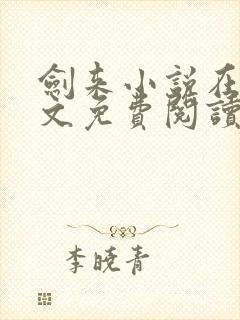 劍来小説在
文免費閱讀
李曉青